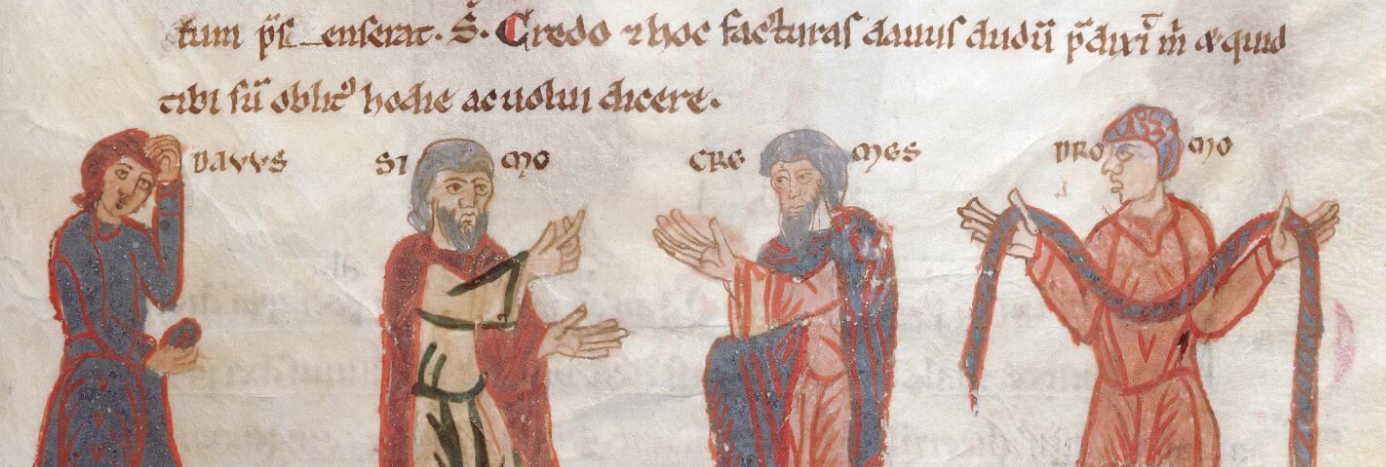 tum enserat. S. Credo ⁊ hoc facturas dauus dudū p̄dixī m̄ & quid
tibi sū oblitꝰ hodie ac uolui dicere.
DAVVS SI MO CRE MES DRO MO